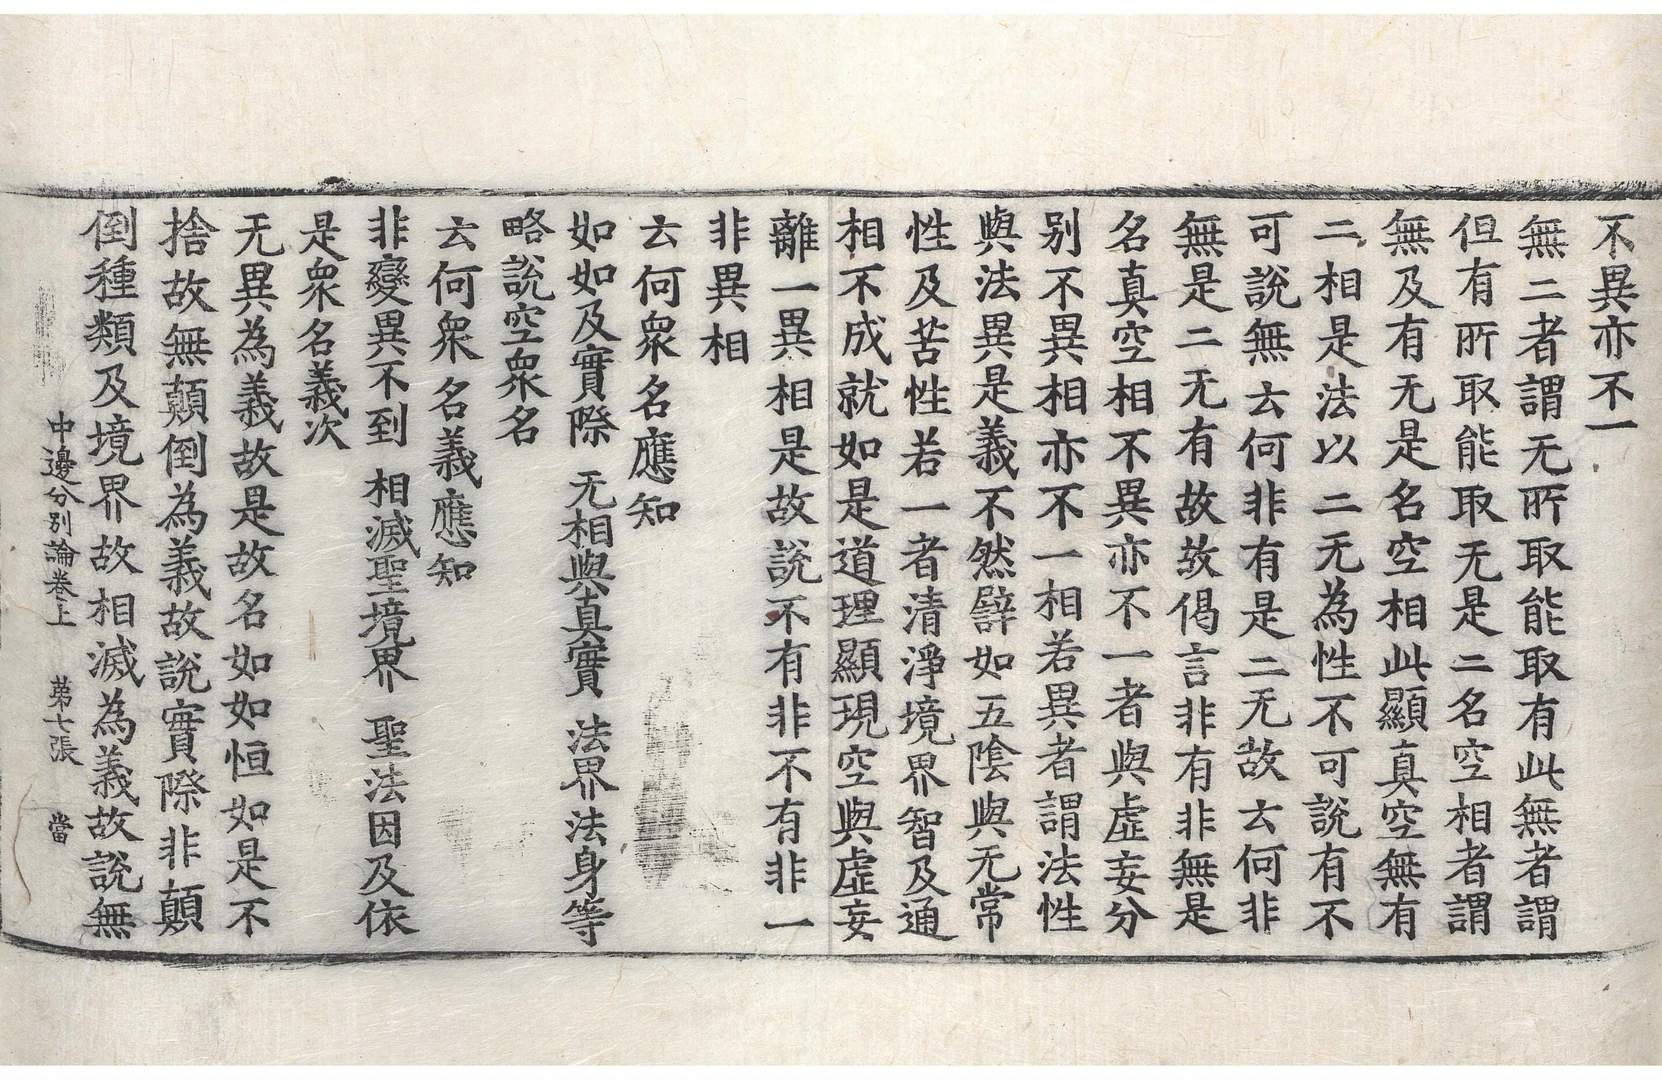 不異亦不一
無二者謂无所取能取有此無者謂
但有所取能取无是二名空相者謂
無及有无是名空相此顯真空無有
二相是法以二无為性不可說有不
可說無云何非有是二无故云何非
無是二无有故故偈言非有非無是
名真空相不異亦不一者與虛妄分
别不異相亦不一相若異者謂法性
與法異是義不然譬如五陰與无常
性及苦性若一者清淨境界智及通
相不成就如是道理顯現空與虛妄
離一異相是故說不有非不有非一
非異相
云何衆名應知
如如及實際 无相與真實 法界法身等
略說空衆名
云何衆名義應知
非變異不到 相滅聖境界 聖法因及依
是衆名義次
无異為義故是故名如如恒如是不
捨故無顛倒為義故說實際非顛
倒種類及境界故相滅為義故說無
中邊分别論卷上 苐七張 當